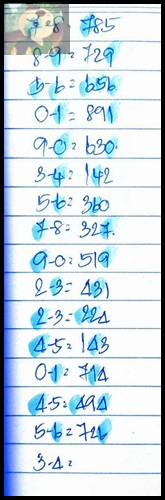 7-8 785
8-9=729
6-6=656
0-1=891
9-0=630.
3-4=142
5-6=360
7-8=327.
9-0=519
2-3=431
2-3=224
4-5=143
0-1=714
4-5=494
5-6=726
3-4=